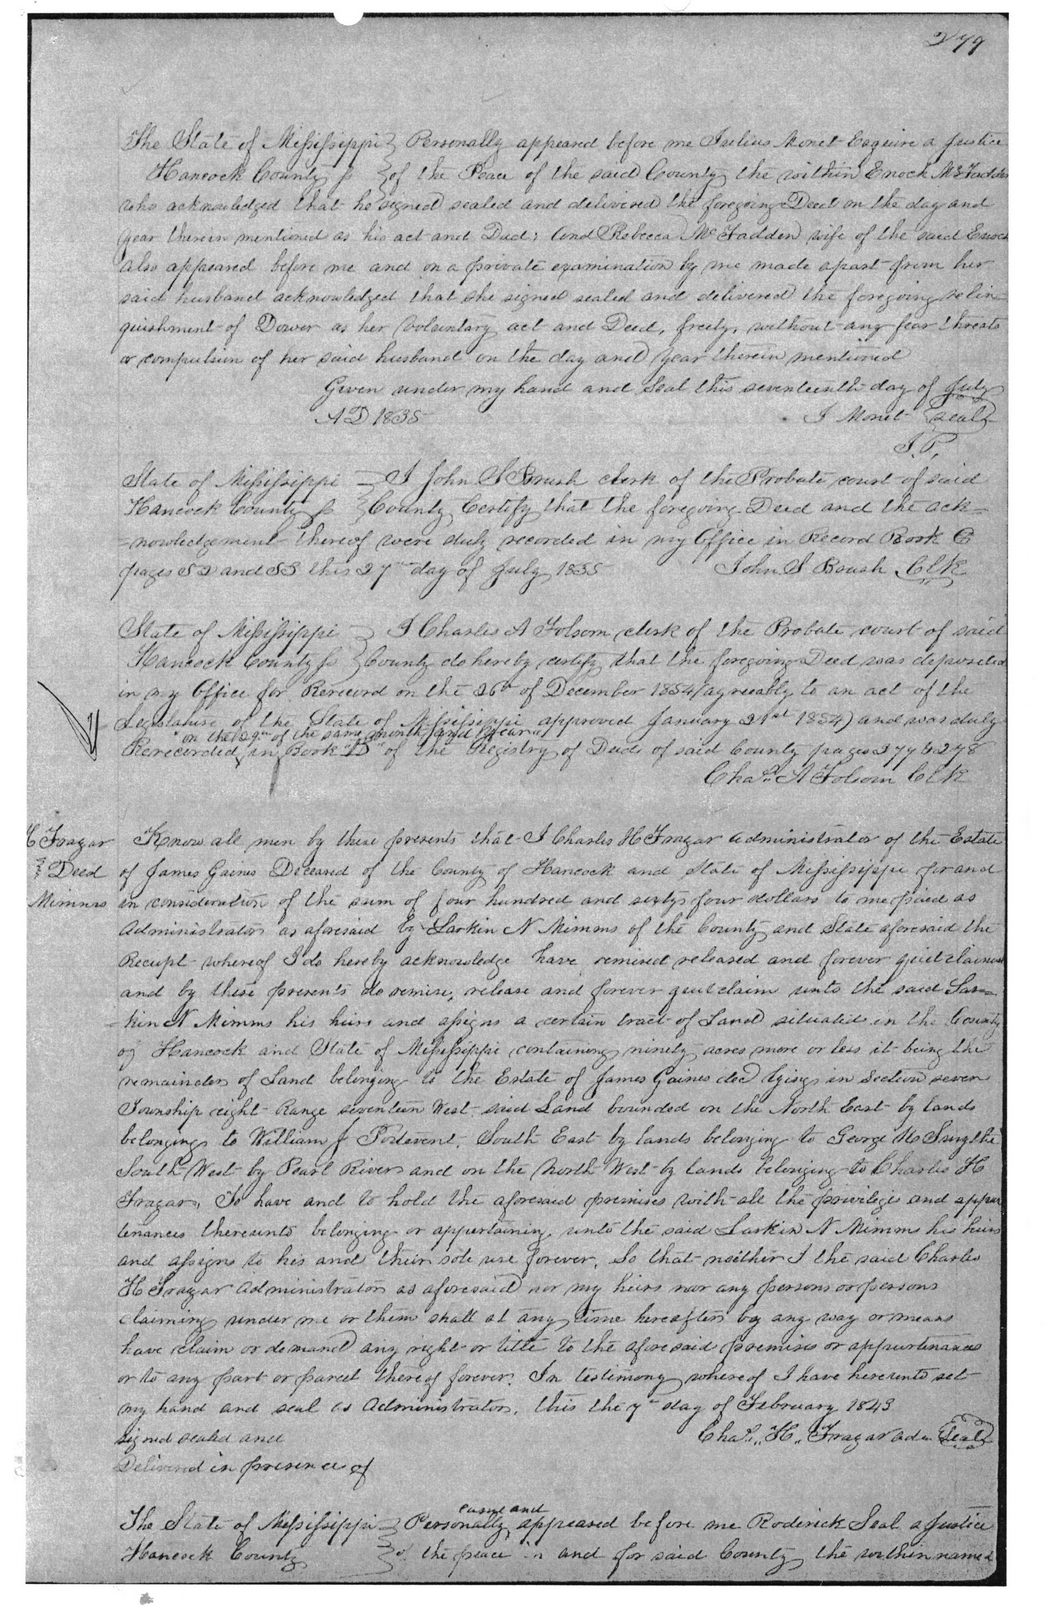 279
The State of Mississippi } Personally appeared before me Julius Monet Esquire a Justice
Hancock County ss } of the Peace of the said County the within Enock McFadden
who acknowledged that he signed sealed and delivered the foregoing Deed on the day and
year therein mentioned as his act and Deed; And Rebecca McFadden wife of the said Enock
also appeared before me and on a private examination by me made apart from her
said husband acknowledged that she signed sealed and delivered the foregoing relin
quishment of Dower as her voluntary act and Deed, freely, without any fear threats
or compulsion of her said husband on the day and year therein mentioned
Given under my hand and Seal this seventeenth day of July
AD 1835 J Monet {seal}
J.P.
State of Mississippi } I John S Brush clerk of the Probate court of said
Hancock County ss } County Certify that the foregoing Deed and the ack=
=nowledgement thereof were duly recorded in my Office in Record Book
pages 52 and 53 this 27th day of July 1835 John S Brush Clk
State of Mississippi } I Charles A Folsom clerk of the Probate court of said
Hancock County ss } County do hereby certify that the foregoing Deed was deposited
in my Office for Rerecord on the 26th of December 1854 (agreeably to an act of the
Legislature of the State of Mississippi approved January 21st 1854) and was duly
"on the 29th of the same month and year"
Rerecorded in Book "D" of the Registry of Deeds of said County pages 277 & 278
Chas. A Folsom Clk
C Frazar
} Deed
Mimms
Know all men by these presents that I Charles H Frazar administrator of the Estate
of James Gaines Deceased of the County of Hancock and State of Mississippi for and
in consideration of the sum of four hundred and sixty four dollars to me paid as
Administrator as aforesaid by Larkin N Mimms of the County and State aforesaid the
Receipt whereof I do hereby acknowledge have remised released and forever quit claimed
and by these presents do remise, release and forever quit claim unto the said Lar=
=kin N Mimms his heirs and assigns a certain tract of Land situated in the County
of Hancock and State of Mississippi containing ninety acres more or less it being the
remainder of Land belonging to the Estate of James Gaines decd lying in Section seven
Township eight Range seventeen West said Land bounded on the North East by lands
belonging to William J Poitevent, South East by lands belonging to George H Smythe
South West by Pearl River and on the North West by lands belonging to Charles H
Frazar, To have and to hold the aforesaid premises with all the privileges and appur
tenances thereunto belonging or appertaining, unto the said Larkin N Mimms his heirs
and assigns to his and their sole use forever, So that neither I the said Charles
H Frazar Administrator as aforesaid nor my heirs nor any persons or persons
claiming under me or them shall at any time hereafter by any way or means
have claim or demand any right or title to the aforesaid premises or appurtenances
or to any part or parcel thereof forever. In testimony whereof I have hereunto set
my hand and seal as Administrator, this the 7th day of February 1843
signed sealed and Chas. H. Frazar adm {seal}
Delivered in presence of
came and
The State of Mississippi } Personally appeared before me Roderick Seal a Justice
Hancock County } of the peace in and for said County the within named